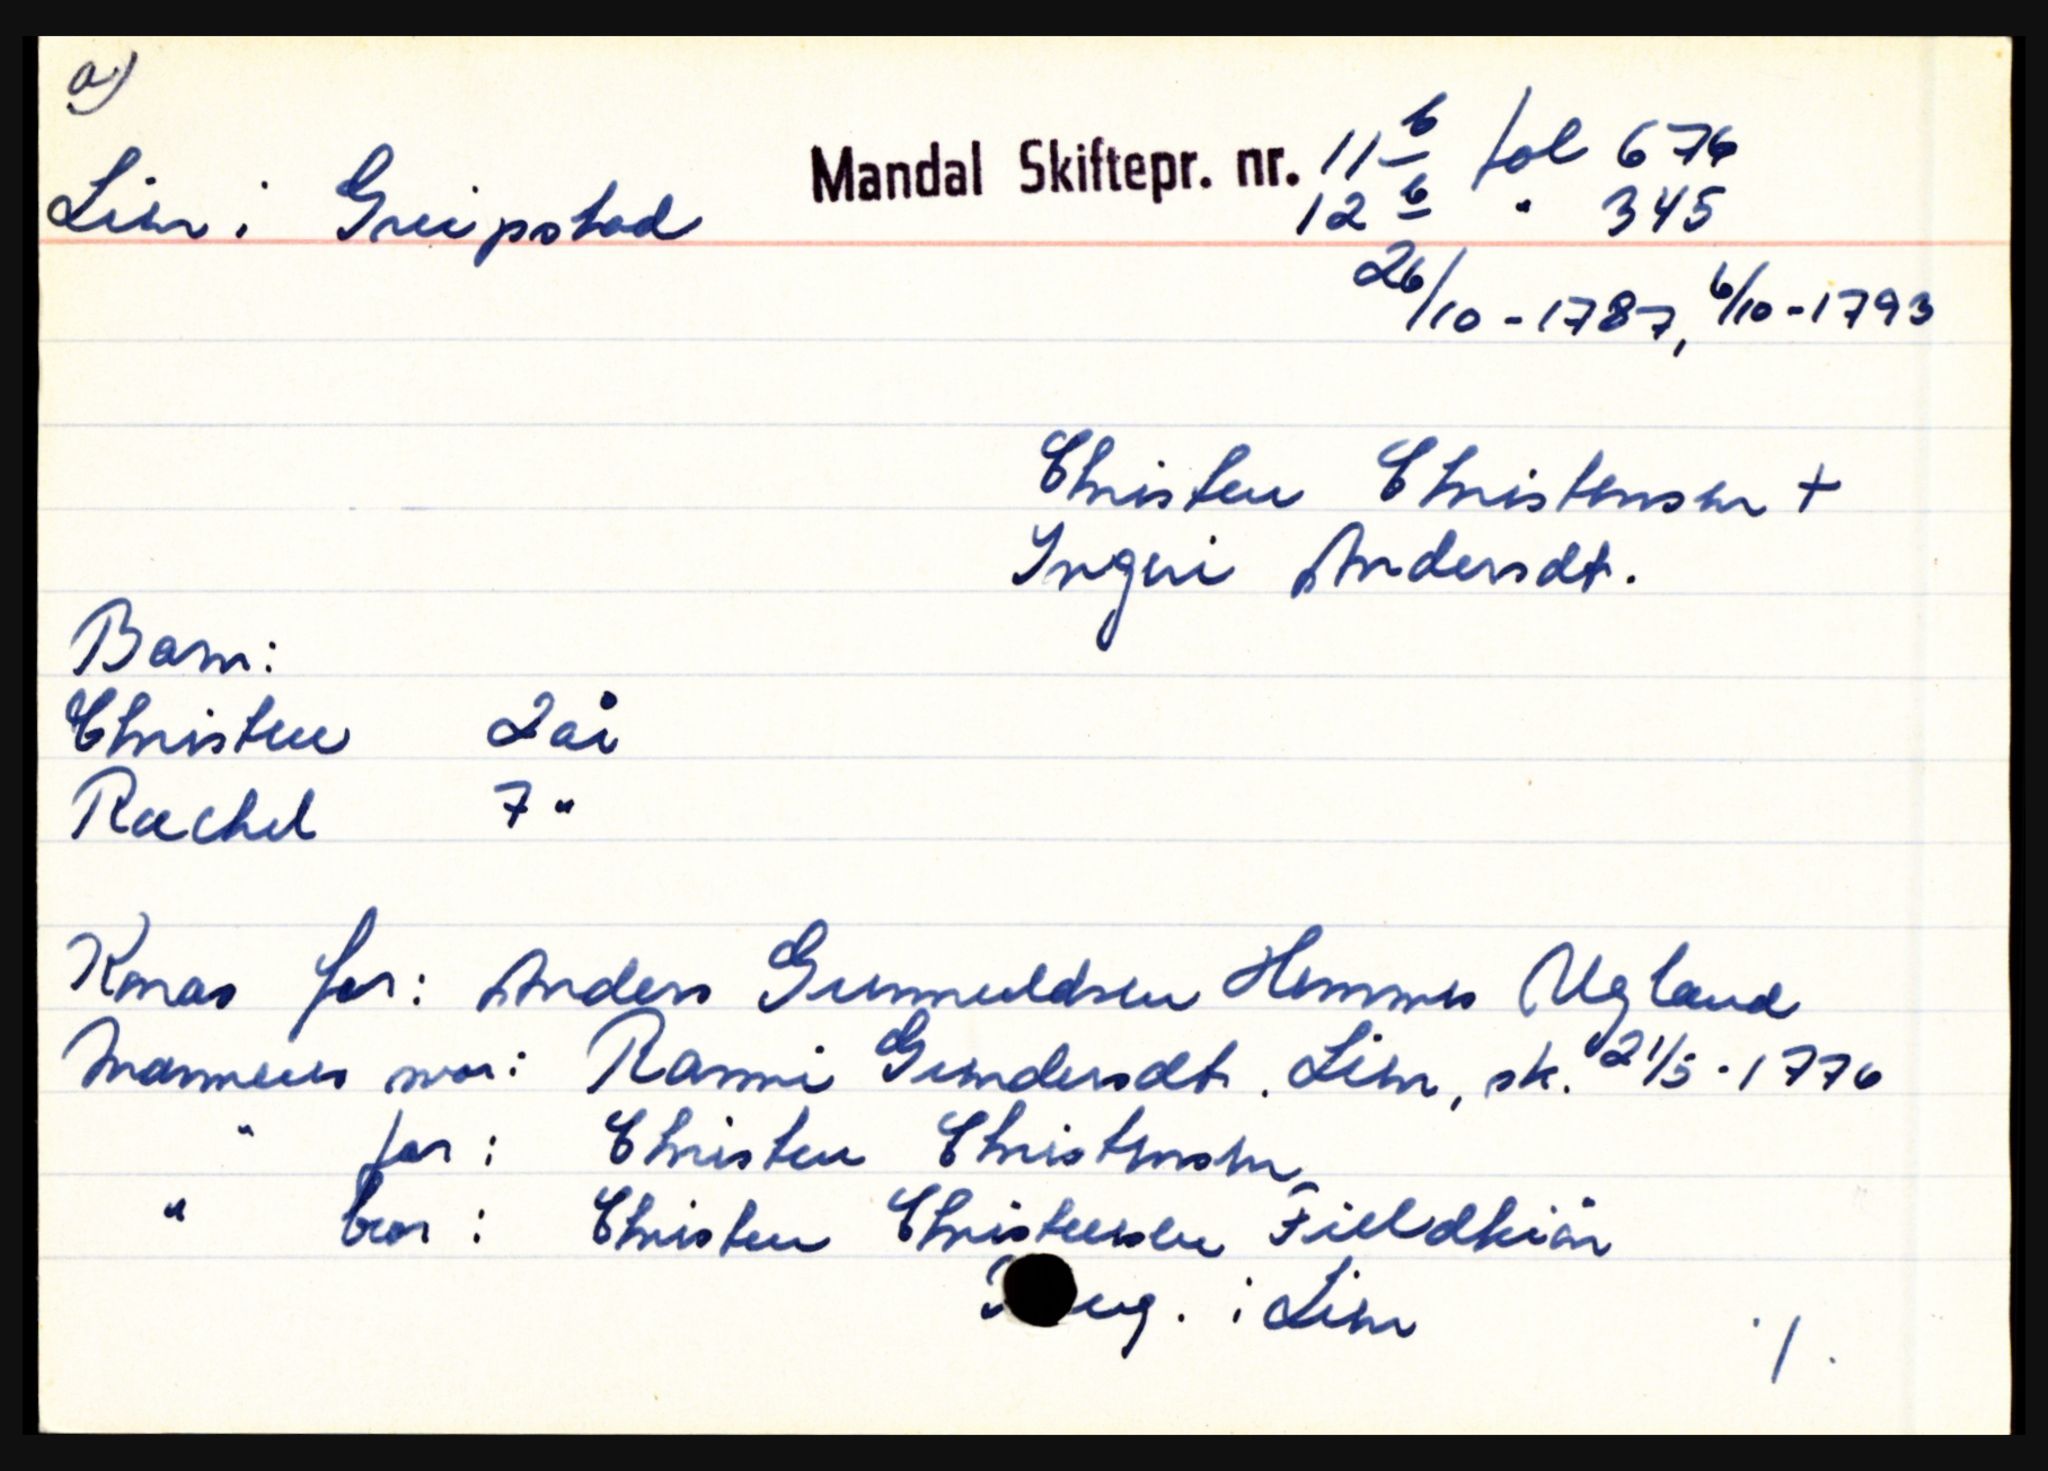 a)
Mandal Skiftepr. nr. 11b fol 676
Lien i Greipstad 12b " 345
26/10-1787, 6/10-1793
Christen Christensen +
Ingeri Andersdt.
Barn:
Christen 2 år
Rachel 7 "
Konas far: Anders Gunnuldsen Hemmes Ugland
Mannens mor: Ranni Gundersdt. Lien, sk. 21/5-1776
" far: Christen Christensen
" bror: Christen Christensen Fieldkiår
eug. i Lien
./.